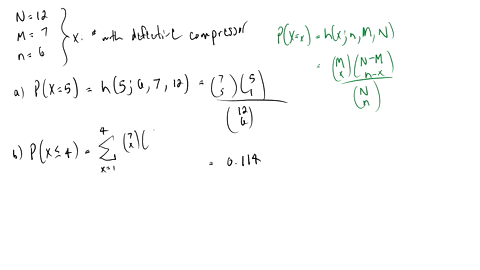 N = 12
M = 7
n = 6
X: # with defective compressor
P(X=x) = h(x; n, M, N)
= (M x)(N-M n-x) / (N n)
a) P(X=5) = h(5; 6, 7, 12) = (7 5)(5 1) / (12 6)
= 0.114
b) P(X ≤ 4) = 4 Σ x=1 (7 x)(